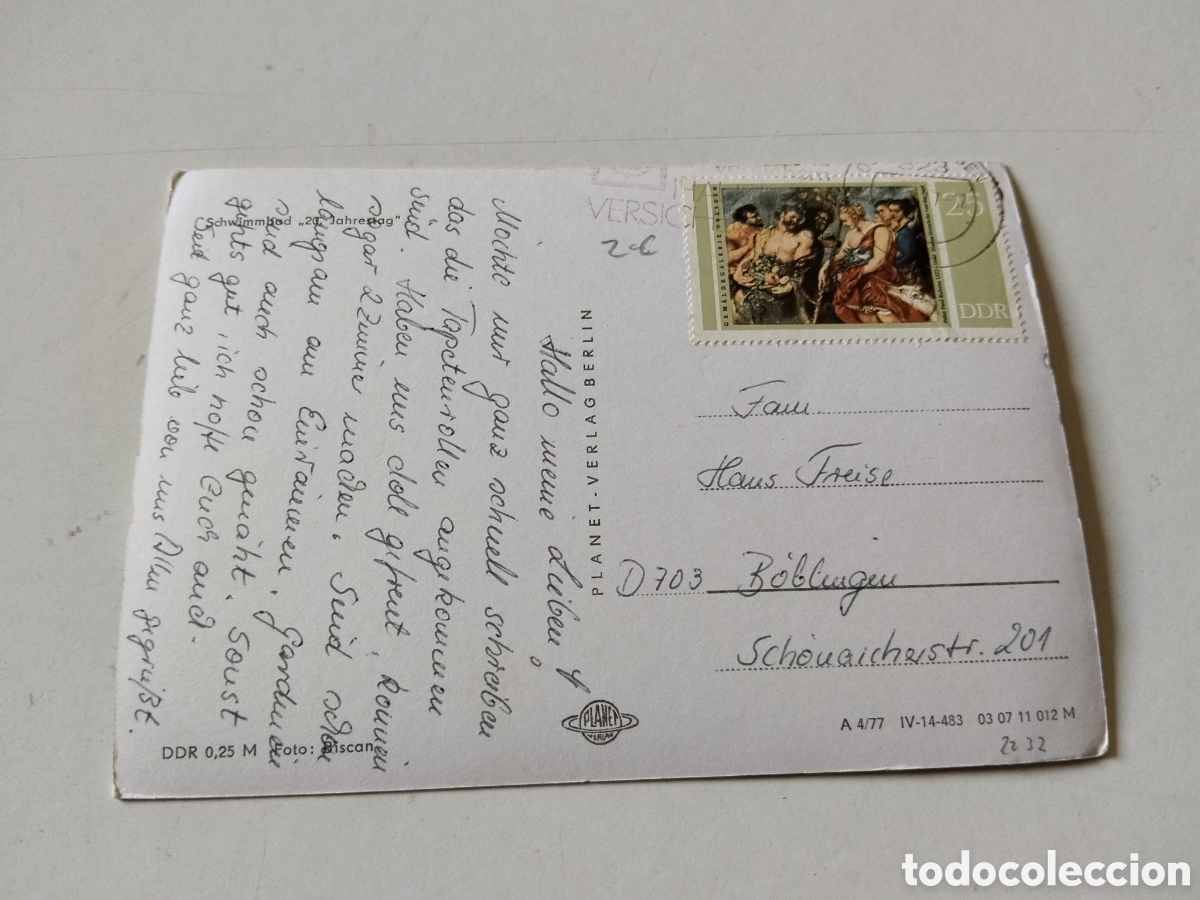 Schwimmbad „20. Jahrestag"
Hallo meine Lieben!
Möchte nur ganz schnell schreiben
das die Tapetenrollen angekommen
sind. Haben uns doll gefreut, können
sogar 2 Zimmer machen. Sind schon
langsam am Einräumen. Gardinen
sind auch schon genäht. Sonst
gehts gut, ich hoffe Euch auch.
Seid ganz lieb von uns Allen gegrüßt.
DDR 0,25 M Foto: Biscan
PLANET-VERLAG BERLIN
PLANET
VERLAG
VERSIC
2.€
GEMÄLDEGALERIE DRESDEN
25
DDR
Fam.
Hans Freise
D 703 Böblingen
Schönaicherstr. 201
A 4/77 IV-14-483 03 07 11 012 M
2232
todocoleccion